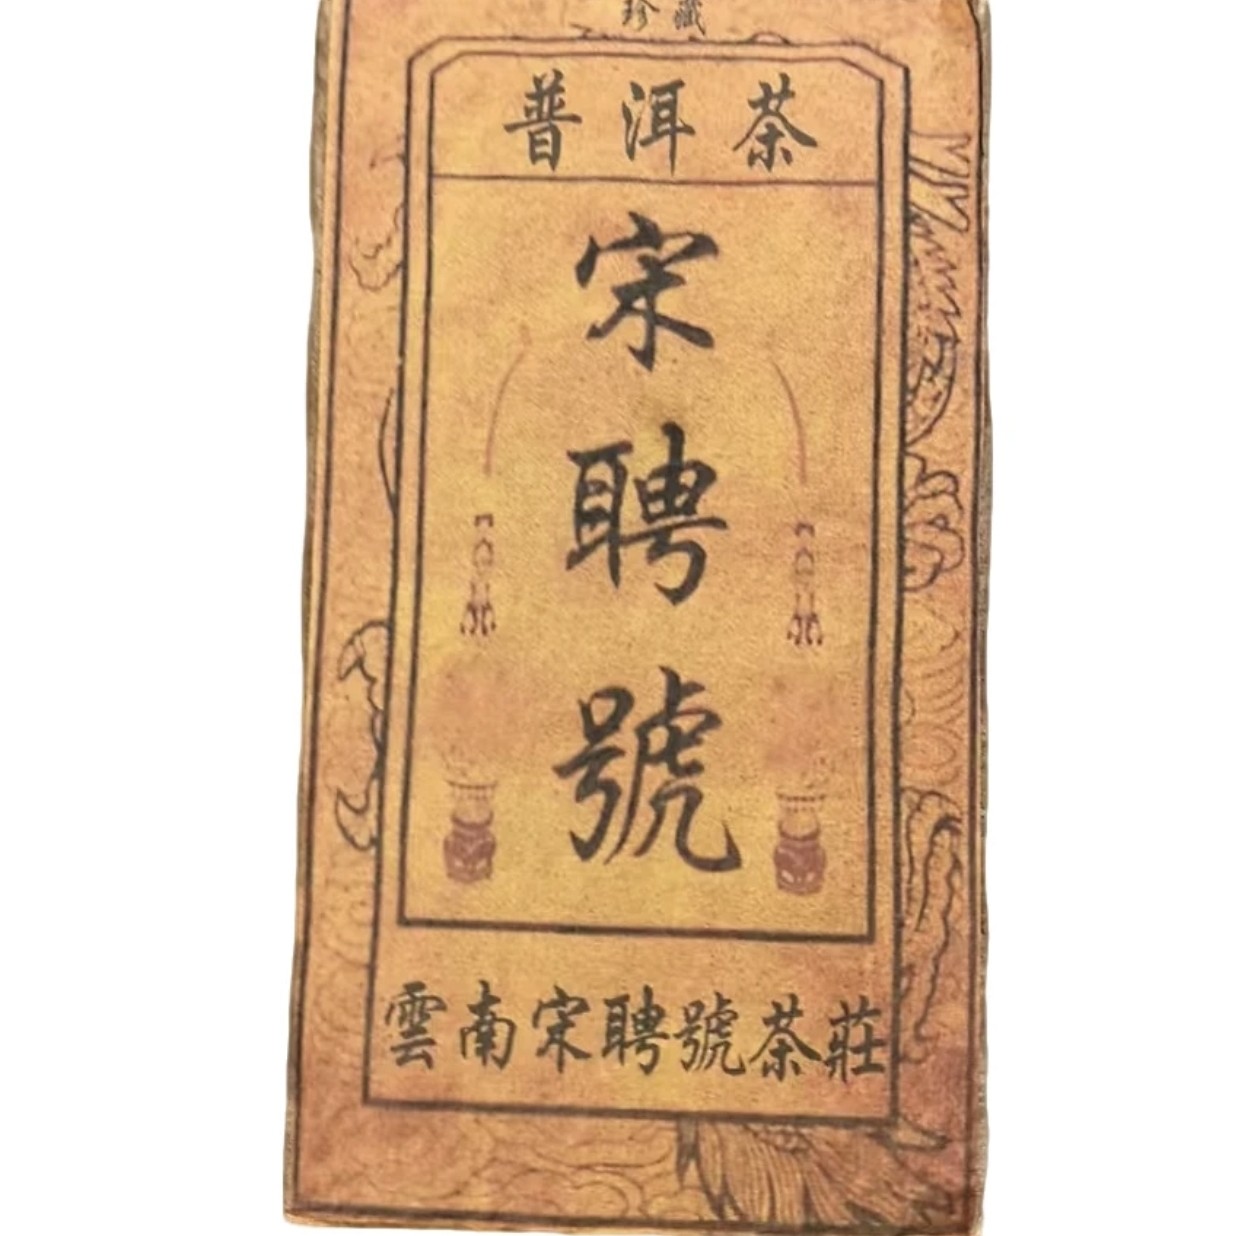 珍藏
普洱茶
宋聘號
雲南宋聘號茶莊